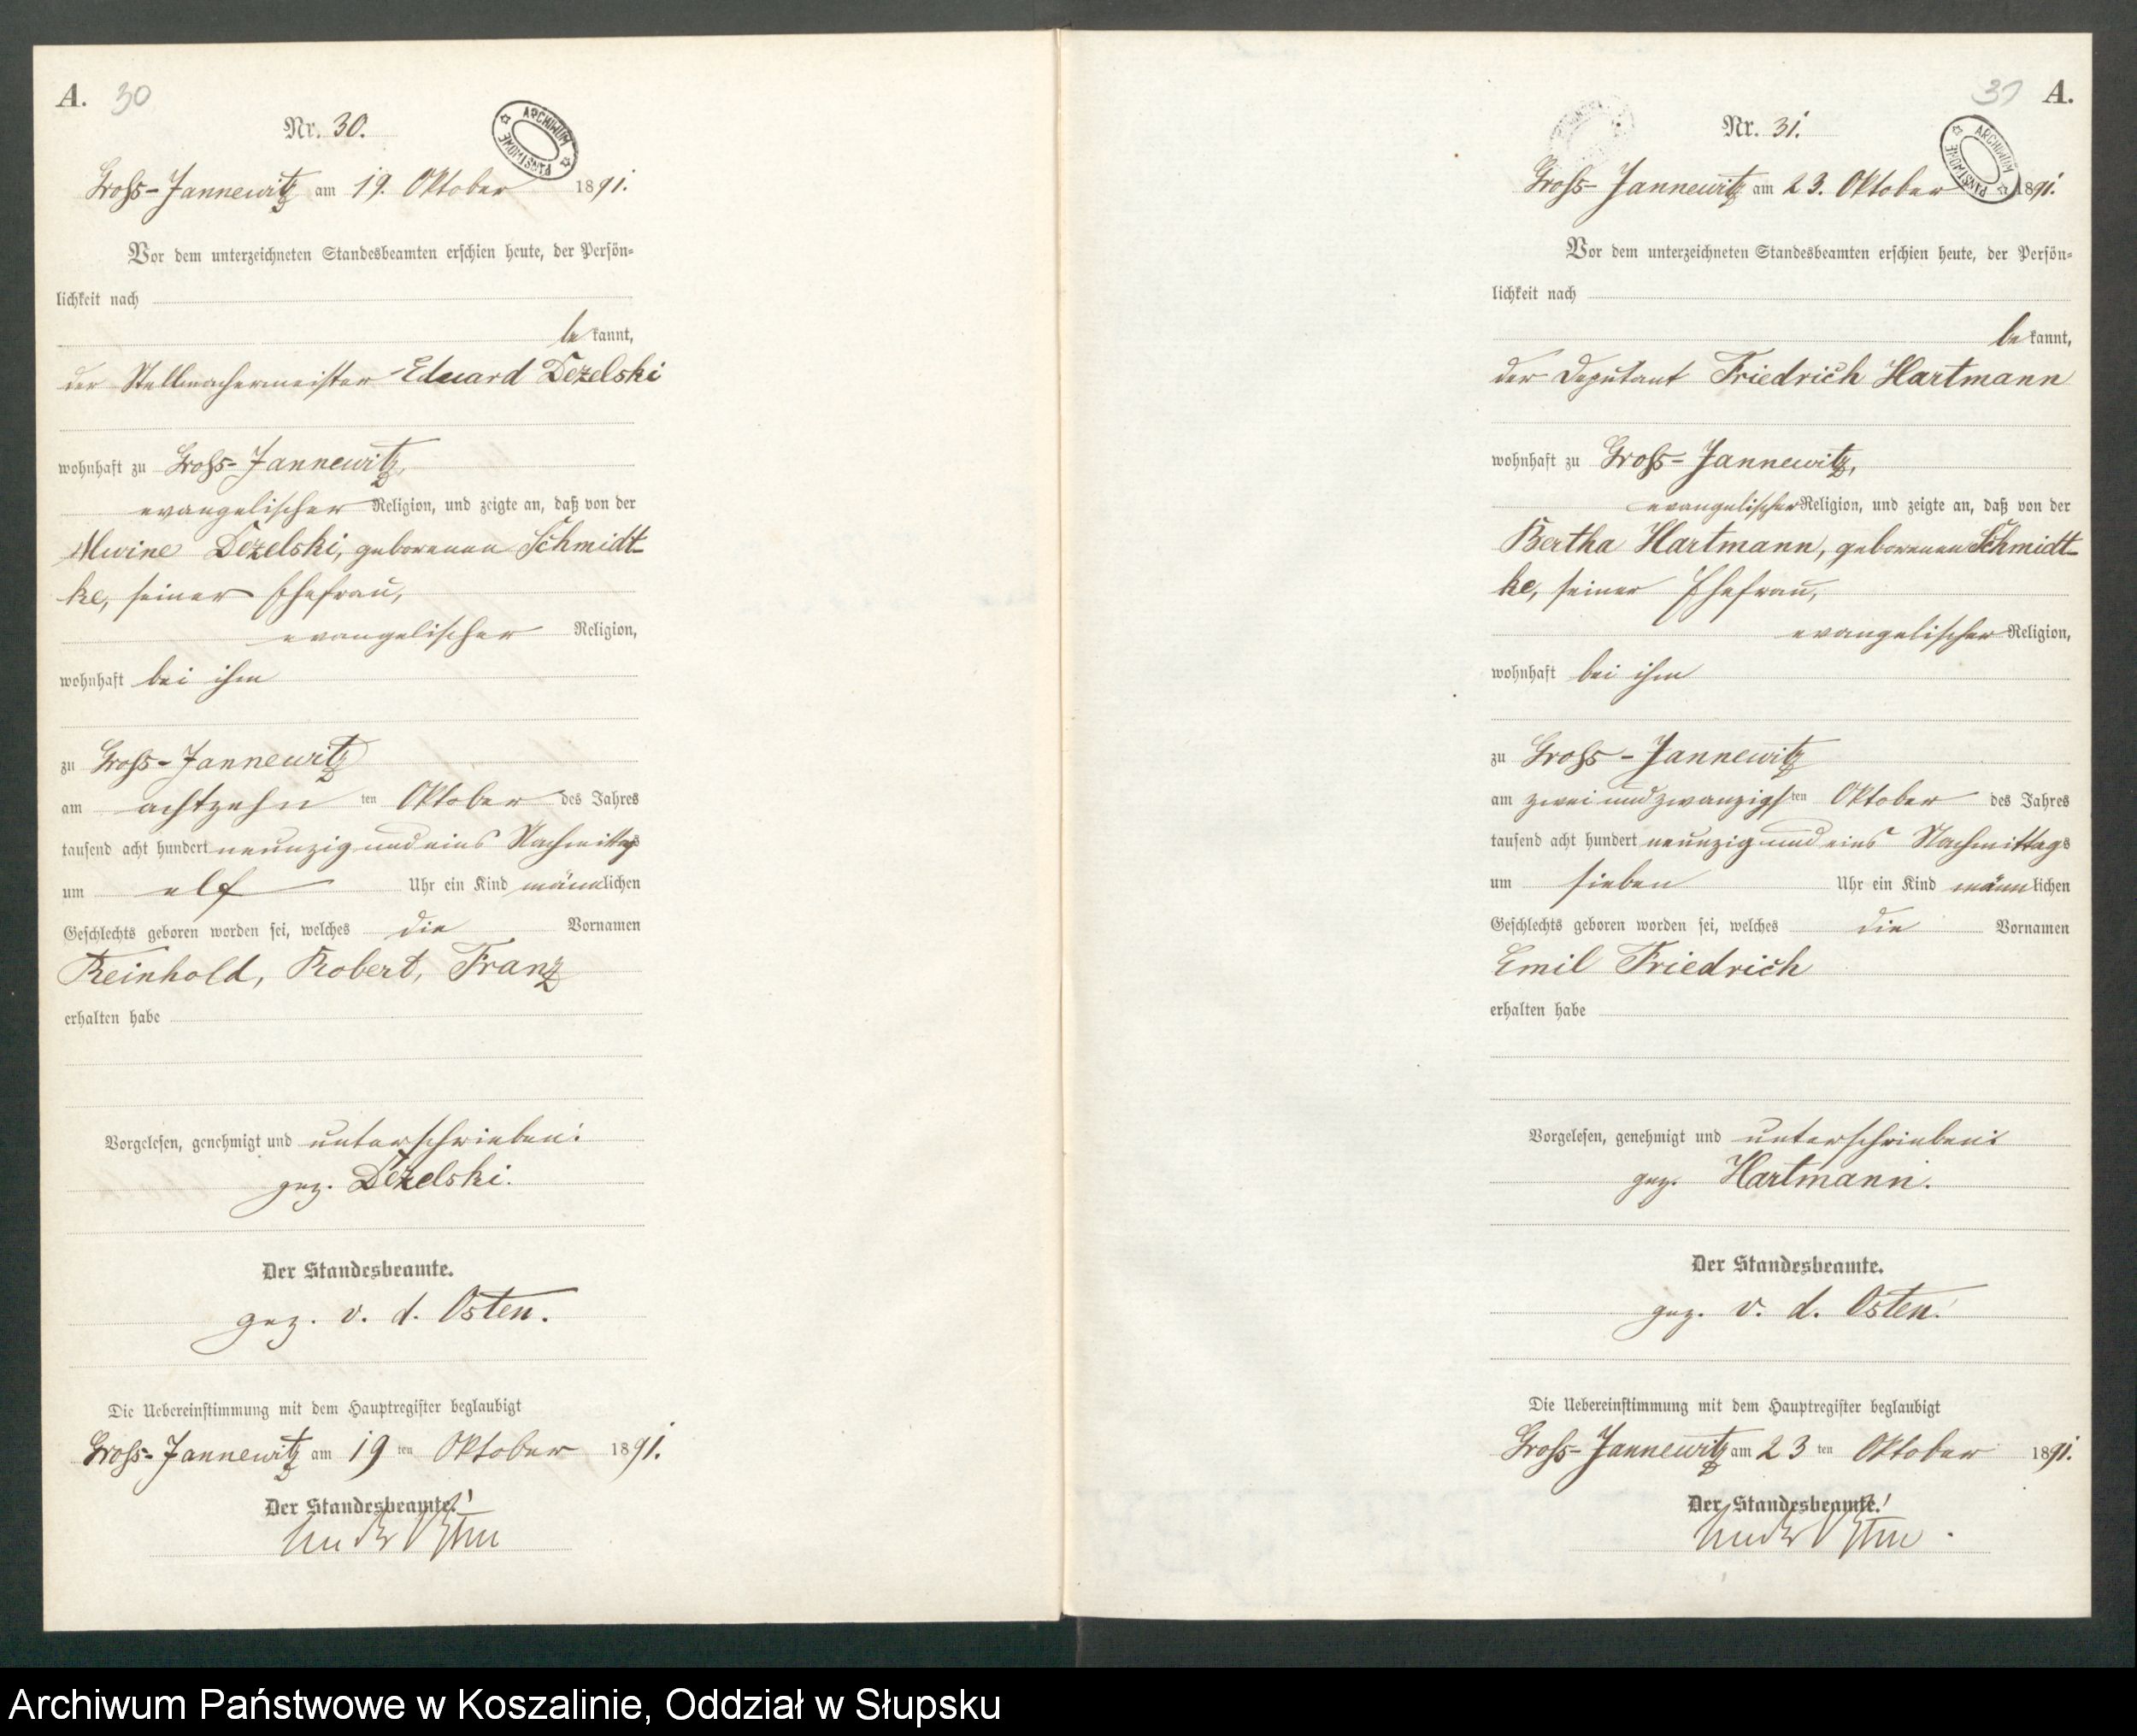 A. 30
Nr. 30.
ARCHIWUM PAŃSTWOWE
Groß-Jannewitz am 19. Oktober 1891.
Vor dem unterzeichneten Standesbeamten erschien heute, der Persön-
lichkeit nach
be kannt,
der Stellmachermeister Eduard Dezelski
wohnhaft zu Groß-Jannewitz,
evangelischer Religion, und zeigte an, daß von der
Alwine Dezelski, geborenen Schmidt-
ke, seiner Ehefrau,
evangelischer Religion,
wohnhaft bei ihm
zu Groß-Jannewitz
am achtzehn ten Oktober des Jahres
tausend acht hundert neunzig und eins Nachmittags
um elf Uhr ein Kind männlichen
Geschlechts geboren worden sei, welches die Vornamen
Reinhold, Robert, Franz
erhalten habe
Vorgelesen, genehmigt und unterschrieben:
gez. Dezelski.
Der Standesbeamte.
gez. v. d. Osten.
Die Uebereinstimmung mit dem Hauptregister beglaubigt
Groß-Jannewitz am 19 ten Oktober 1891.
Der Standesbeamte.
31 A.
Nr. 31.
ARCHIWUM PAŃSTWOWE
Groß-Jannewitz am 23. Oktober 1891.
Vor dem unterzeichneten Standesbeamten erschien heute, der Persön-
lichkeit nach
be kannt,
der Deputant Friedrich Hartmann
wohnhaft zu Groß-Jannewitz,
evangelischer Religion, und zeigte an, daß von der
Bertha Hartmann, geborenen Schmidt-
ke, seiner Ehefrau,
evangelischer Religion,
wohnhaft bei ihm
zu Groß-Jannewitz
am zwei und zwanzigsten Oktober des Jahres
tausend acht hundert neunzig und eins Nachmittags
um sieben Uhr ein Kind männlichen
Geschlechts geboren worden sei, welches die Vornamen
Emil Friedrich
erhalten habe
Vorgelesen, genehmigt und unterschrieben:
gez. Hartmann.
Der Standesbeamte.
gez. v. d. Osten.
Die Uebereinstimmung mit dem Hauptregister beglaubigt
Groß-Jannewitz am 23 ten Oktober 1891.
Der Standesbeamte.
Archiwum Państwowe w Koszalinie, Oddział w Słupsku